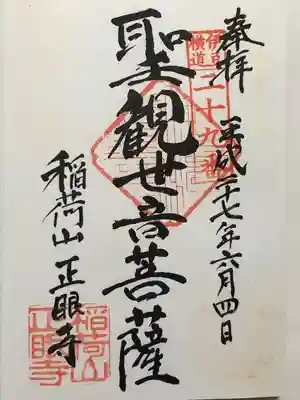 奉拝
伊豆
横道
二十九番
平成二十七年六月四日
聖観世音菩薩
稲荷山 正眼寺
稲荷山
正眼寺